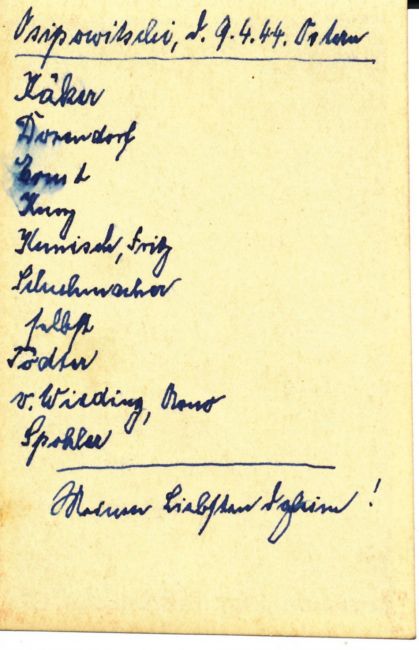 Osipowitschi, d. 9.4.44. Ostern
Käker
Dorendorf
Ernst
Kunz
Kunisch, Fritz
Schuhmacher
selbst
Tödter
v. Wieding, Arno
Spohler
Meiner Liebsten daheim!